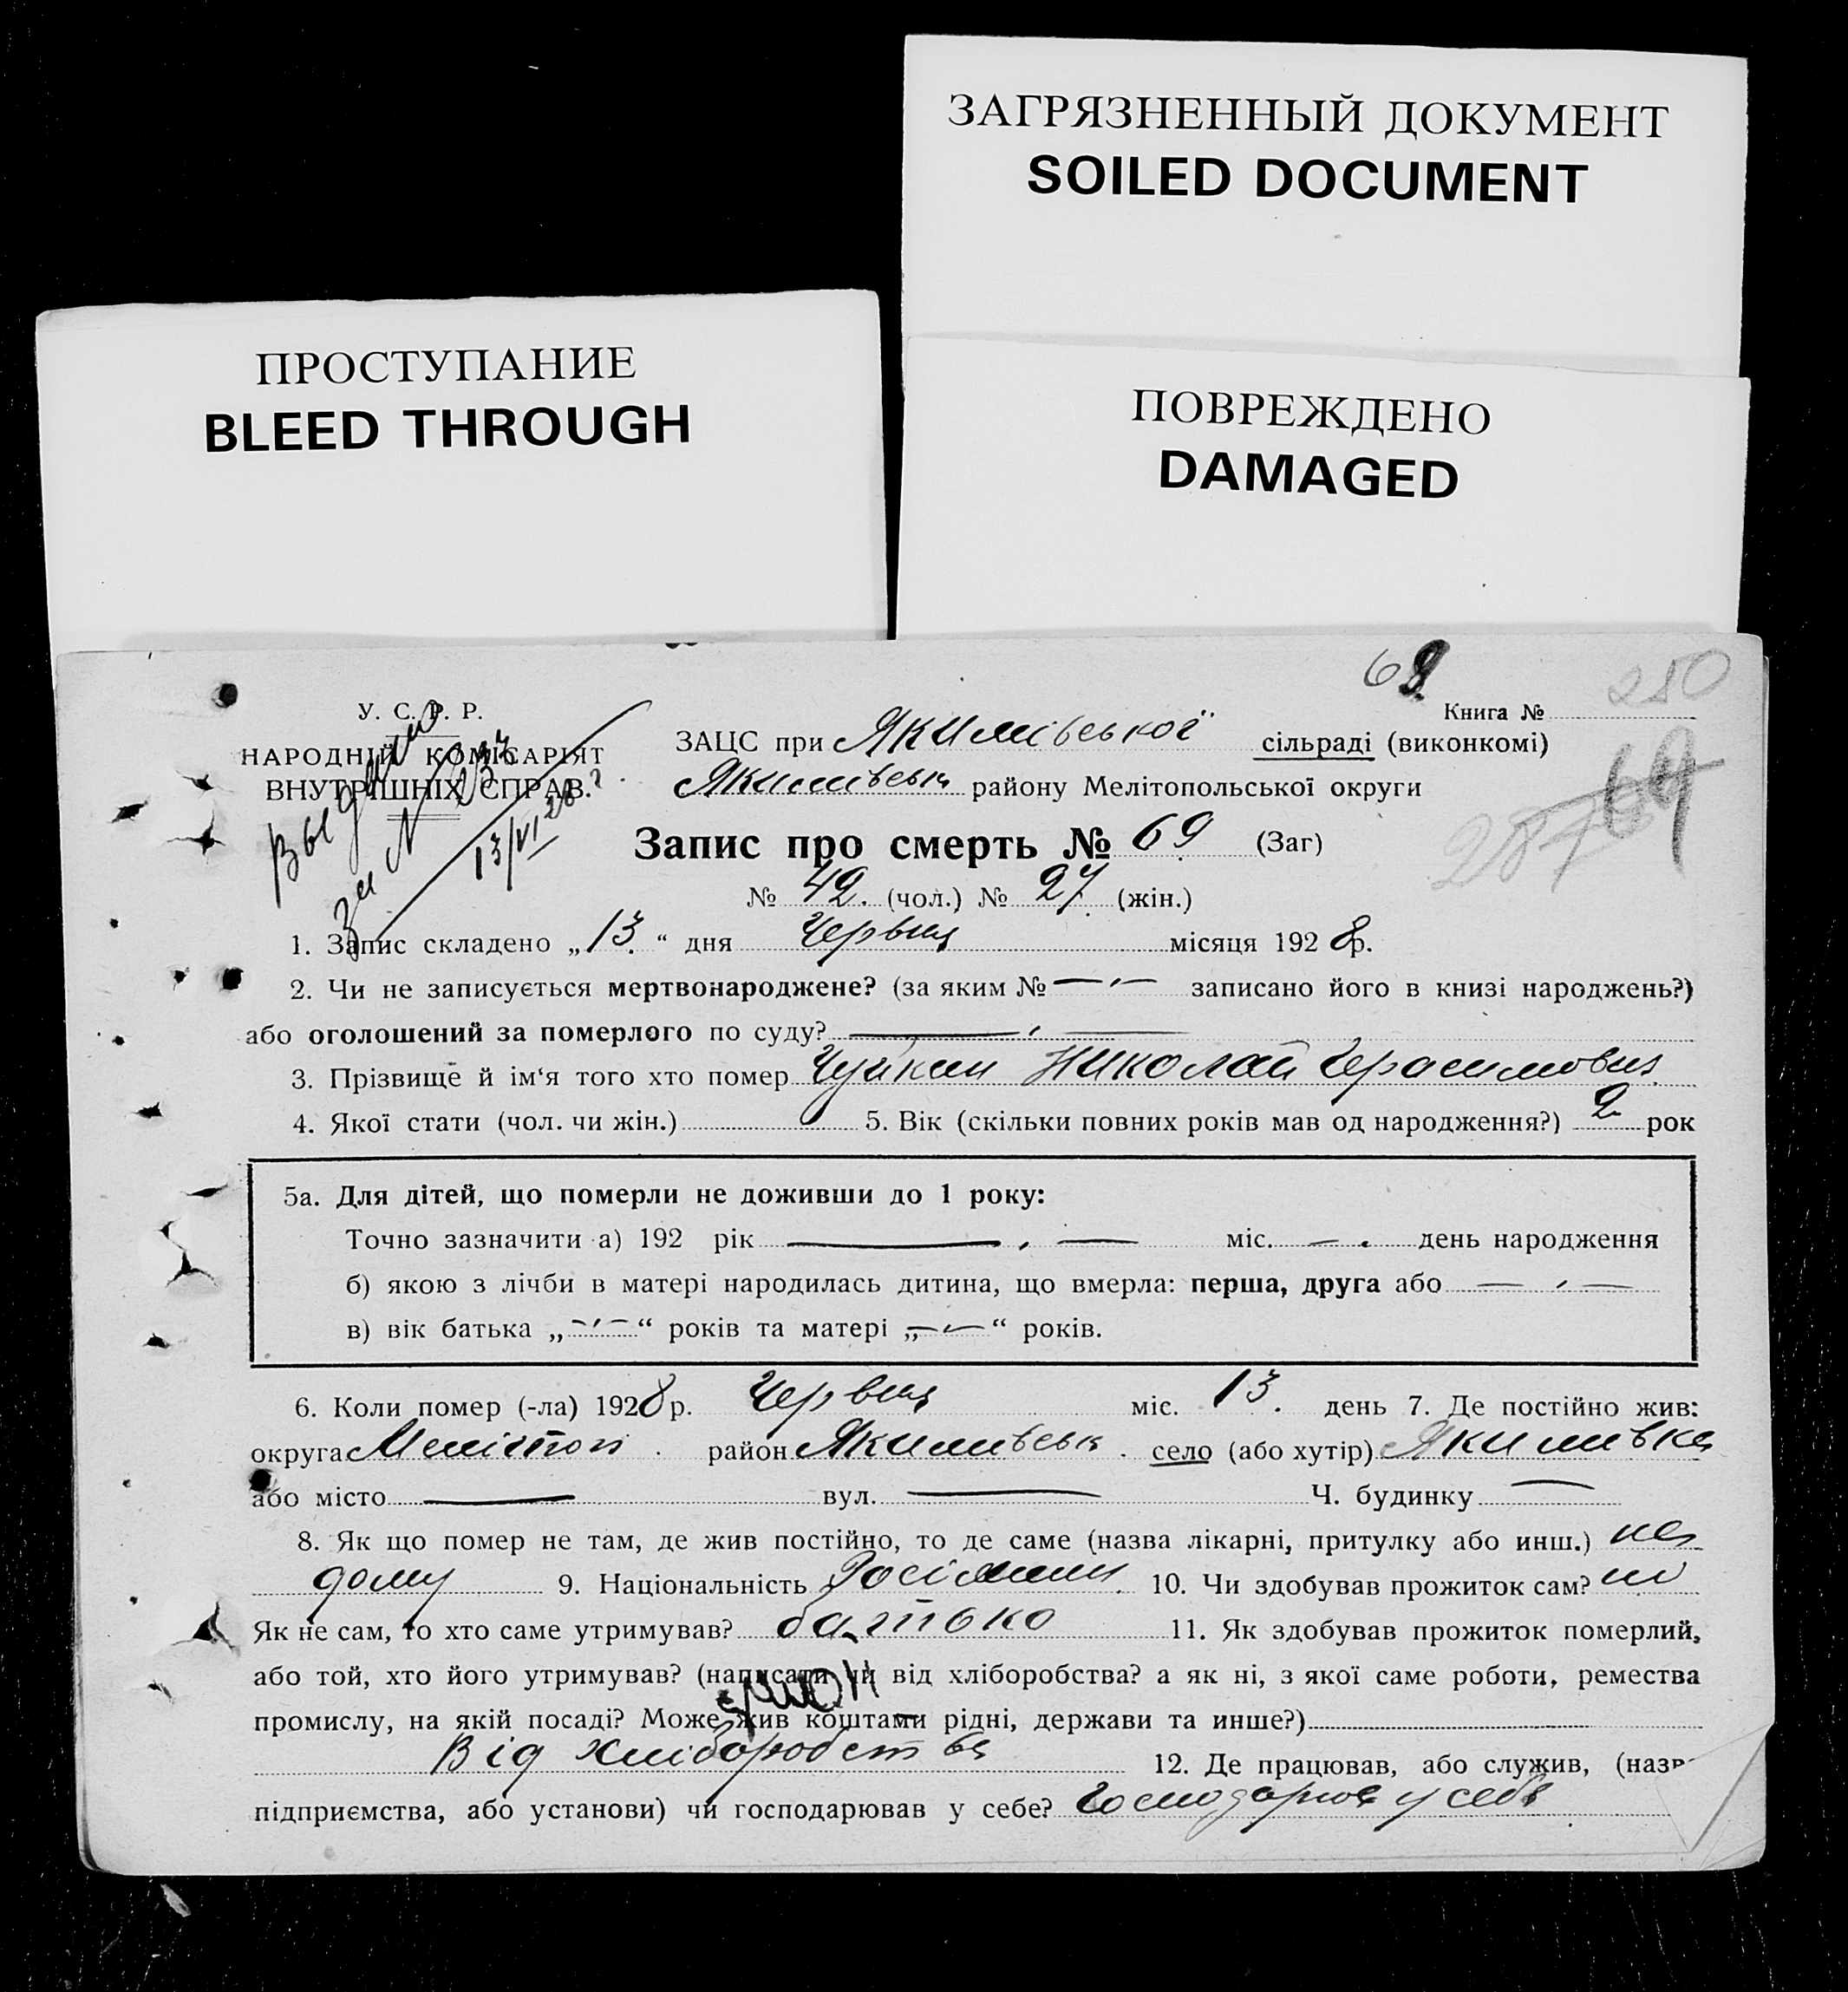 ЗАГРЯЗНЕННЫЙ ДОКУМЕНТ
SOILED DOCUMENT
ПРОСТУПАНИЕ
BLEED THROUGH
ПОВРЕЖДЕНО
DAMAGED
280
Книга №
У. С. Р. Р.
НАРОДНІЙ КОМІСАРІЯТ
ВНУТРІШНІХ СПРАВ.
Выдано
за №
13/VI 28 г
ЗАЦС при Якимівської сільраді (виконкомі)
Якимівськ району Мелітопольської округи
69
Запис про смерть № 69 (Заг)
№ 42. (чол.) № 27 (жін.)
1. Запис складено „13.“ дня Червня місяця 1928 р.
2. Чи не записується мертвонароджене? (за яким № — записано його в книзі народжень?)
або оголошений за померлого по суду? —
3. Прізвище й ім‘я того хто помер Чуйкин Николай Герасимович
4. Якої стати (чол. чи жін.) 5. Вік (скільки повних років мав од народження?) 2 рок
5а. Для дітей, що померли не доживши до 1 року:
Точно зазначити а) 192 рік — міс. — день народження
б) якою з лічби в матері народилась дитина, що вмерла: перша, друга або —
в) вік батька „—“ років та матері „—“ років.
6. Коли помер (-ла) 1928 р. Червня міс. 13. день 7. Де постійно жив:
округа Мелітоп. район Якимівськ. село (або хутір) Якимівка
або місто — вул. — Ч. будинку —
8. Як що помер не там, де жив постійно, то де саме (назва лікарні, притулку або инш.) на
дому 9. Національність 10. Чи здобував прожиток сам? ні
Як не сам, то хто саме утримував? батько 11. Як здобував прожиток померлий,
або той, хто його утримував? (написати чи від хліборобства? а як ні, з якої саме роботи, ремества
промислу, на якій посаді? Може жив коштами рідні, держави та инше?)
Від хліборобства 12. Де працював, або служив, (назва
підприємства, або установи) чи господарював у себе? Господарює у себе